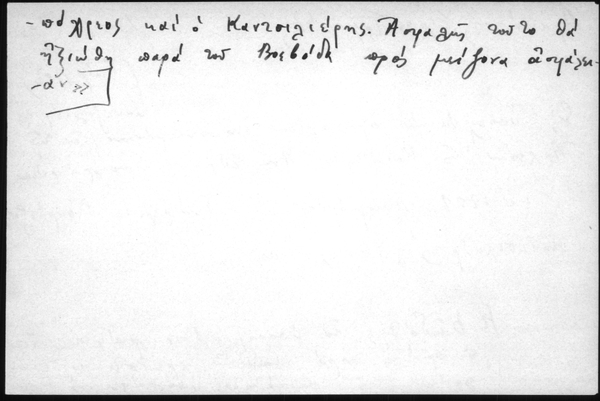 -πόχρεος καί ὁ Καντσιλιέρης. Ἀσφαλῶς τοῦτο θά
ἠξιώθη παρά τοῦ Βοεβόδα πρός μείζονα ἀσφάλει-
-αν»